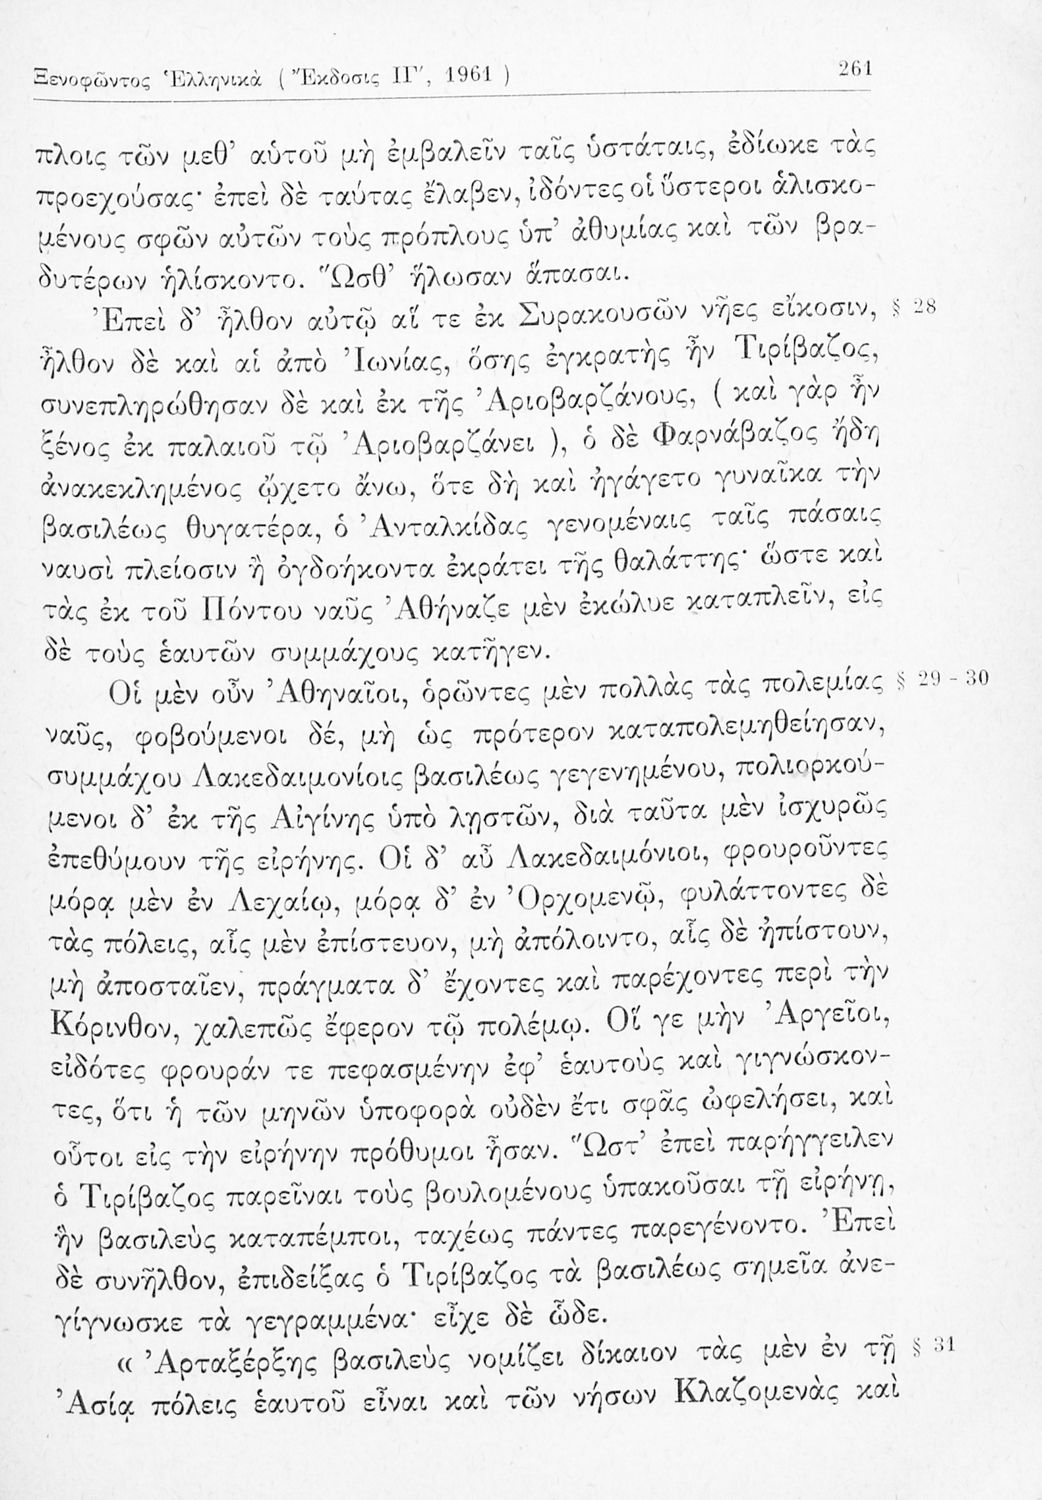 Ξενοφῶντος Ἑλληνικὰ ( Ἔκδοσις ΙΓ′, 1961 ) 261
πλοις τῶν μεθ’ αὑτοῦ μὴ ἐμβαλεῖν ταῖς ὑστάταις, ἐδίωκε τὰς
προεχούσας· ἐπεὶ δὲ ταύτας ἔλαβεν, ἰδόντες οἱ ὕστεροι ἁλισκο-
μένους σφῶν αὐτῶν τοὺς πρόπλους ὑπ’ ἀθυμίας καὶ τῶν βρα-
δυτέρων ἡλίσκοντο. Ὥσθ’ ἥλωσαν ἅπασαι.
Ἐπεὶ δ’ ἦλθον αὐτῷ αἵ τε ἐκ Συρακουσῶν νῆες εἴκοσιν, § 28
ἦλθον δὲ καὶ αἱ ἀπὸ Ἰωνίας, ὅσης ἐγκρατὴς ἦν Τιρίβαζος,
συνεπληρώθησαν δὲ καὶ ἐκ τῆς Ἀριοβαρζάνους, ( καὶ γὰρ ἦν
ξένος ἐκ παλαιοῦ τῷ Ἀριοβαρζάνει ), ὁ δὲ Φαρνάβαζος ἤδη
ἀνακεκλημένος ᾤχετο ἄνω, ὅτε δὴ καὶ ἠγάγετο γυναῖκα τὴν
βασιλέως θυγατέρα, ὁ Ἀνταλκίδας γενομέναις ταῖς πάσαις
ναυσὶ πλείοσιν ἢ ὀγδοήκοντα ἐκράτει τῆς θαλάττης· ὥστε καὶ
τὰς ἐκ τοῦ Πόντου ναῦς Ἀθήναζε μὲν ἐκώλυε καταπλεῖν, εἰς
δὲ τοὺς ἑαυτῶν συμμάχους κατῆγεν.
Οἱ μὲν οὖν Ἀθηναῖοι, ὁρῶντες μὲν πολλὰς τὰς πολεμίας § 29 - 30
ναῦς, φοβούμενοι δέ, μὴ ὡς πρότερον καταπολεμηθείησαν,
συμμάχου Λακεδαιμονίοις βασιλέως γεγενημένου, πολιορκού-
μενοι δ’ ἐκ τῆς Αἰγίνης ὑπὸ λῃστῶν, διὰ ταῦτα μὲν ἰσχυρῶς
ἐπεθύμουν τῆς εἰρήνης. Οἱ δ’ αὖ Λακεδαιμόνιοι, φρουροῦντες
μόρᾳ μὲν ἐν Λεχαίῳ, μόρᾳ δ’ ἐν Ὀρχομενῷ, φυλάττοντες δὲ
τὰς πόλεις, αἷς μὲν ἐπίστευον, μὴ ἀπόλοιντο, αἷς δὲ ἠπίστουν,
μὴ ἀποσταῖεν, πράγματα δ’ ἔχοντες καὶ παρέχοντες περὶ τὴν
Κόρινθον, χαλεπῶς ἔφερον τῷ πολέμῳ. Οἵ γε μὴν Ἀργεῖοι,
εἰδότες φρουράν τε πεφασμένην ἐφ’ ἑαυτοὺς καὶ γιγνώσκον-
τες, ὅτι ἡ τῶν μηνῶν ὑποφορὰ οὐδὲν ἔτι σφᾶς ὠφελήσει, καὶ
οὗτοι εἰς τὴν εἰρήνην πρόθυμοι ἦσαν. Ὥστ’ ἐπεὶ παρήγγειλεν
ὁ Τιρίβαζος παρεῖναι τοὺς βουλομένους ὑπακοῦσαι τῇ εἰρήνῃ,
ἣν βασιλεὺς καταπέμποι, ταχέως πάντες παρεγένοντο. Ἐπεὶ
δὲ συνῆλθον, ἐπιδείξας ὁ Τιρίβαζος τὰ βασιλέως σημεῖα ἀνε-
γίγνωσκε τὰ γεγραμμένα· εἶχε δὲ ὧδε.
« Ἀρταξέρξης βασιλεὺς νομίζει δίκαιον τὰς μὲν ἐν τῇ § 31
Ἀσίᾳ πόλεις ἑαυτοῦ εἶναι καὶ τῶν νήσων Κλαζομενὰς καὶ